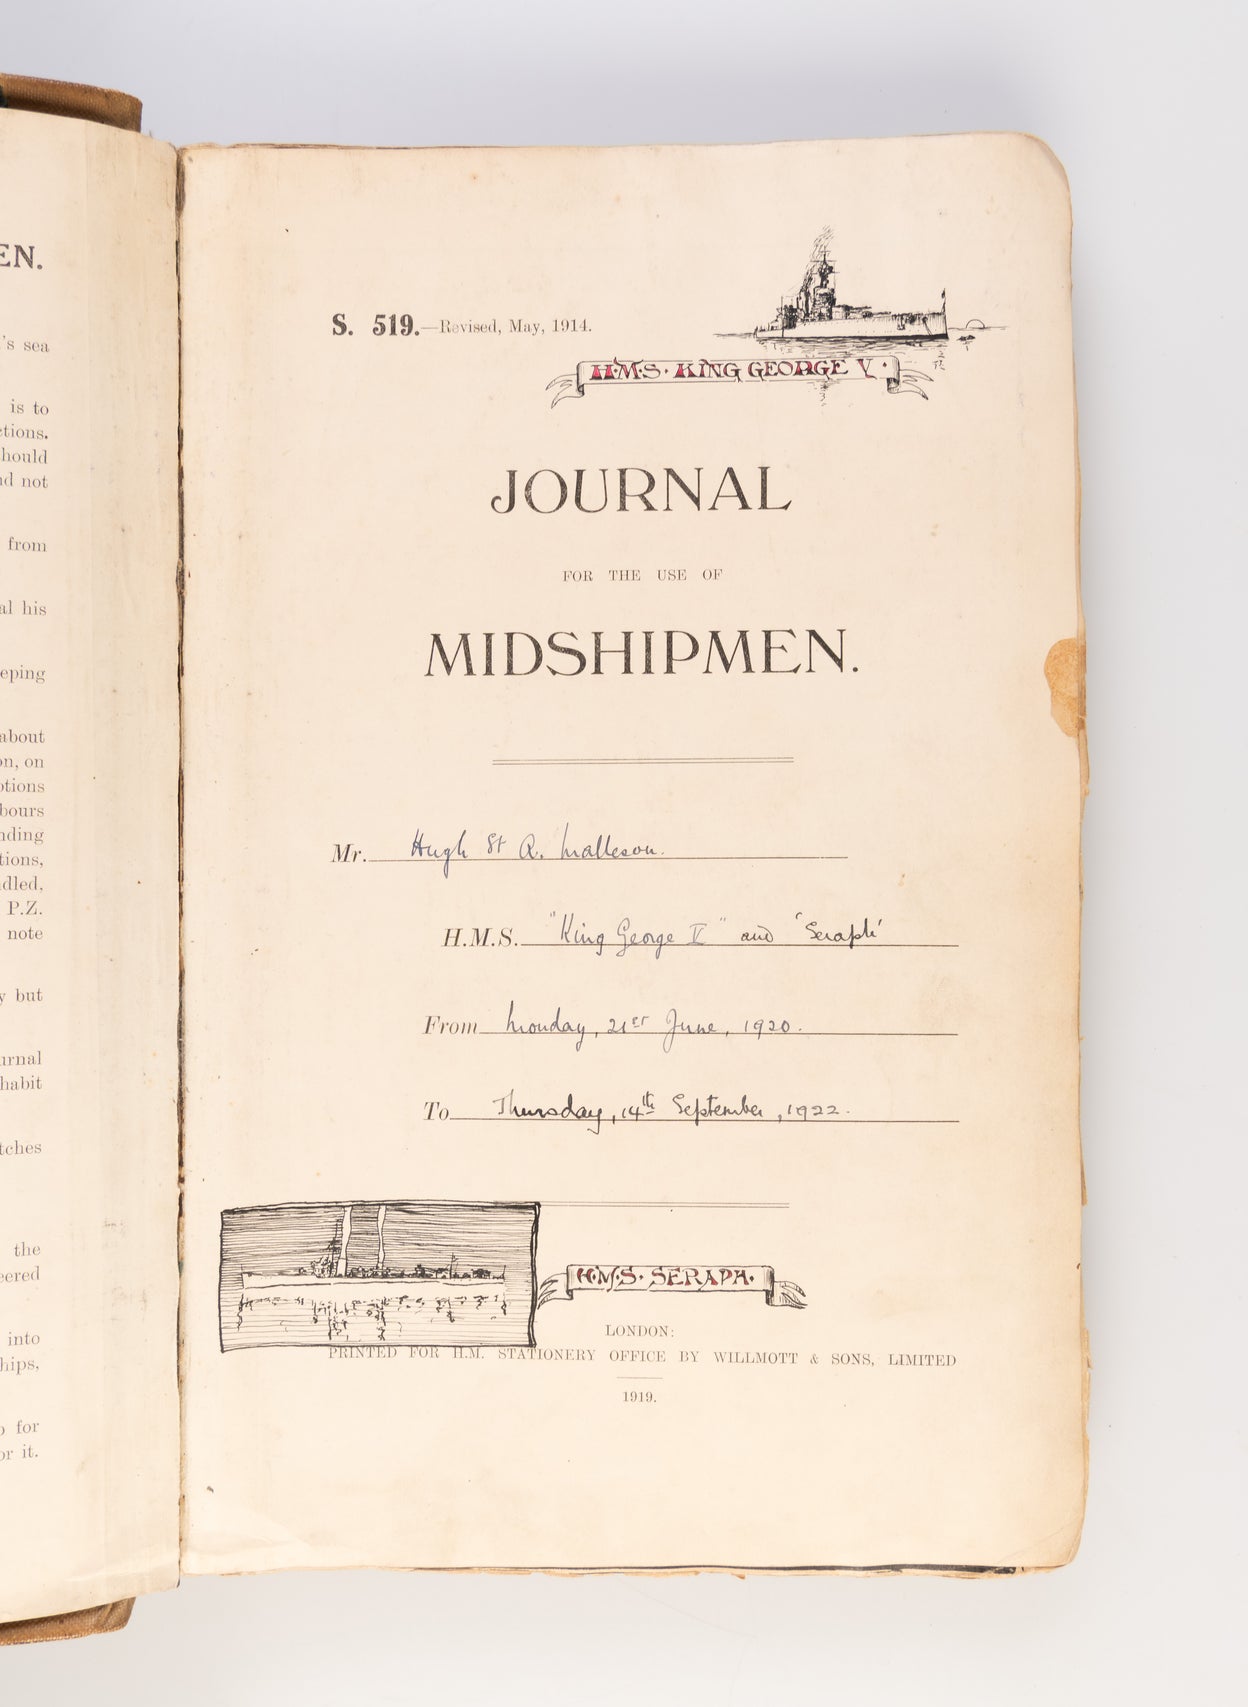 EN.
's sea
is to
ctions.
should
nd not
from
al his
eeping
about
on, on
ptions
bours
nding
tions,
dled,
P.Z.
note
y but
urnal
habit
tches
the
eered
into
hips,
o for
or it.
S. 519.—Revised, May, 1914.
H·M·S· KING GEORGE V·
JOURNAL
FOR THE USE OF
MIDSHIPMEN.
Mr. Hugh St R. Malleson.
H.M.S. "King George V" and 'Seraph'
From Monday, 21st June, 1920.
To Thursday, 14th September, 1922.
H·M·S· SERAPH·
LONDON:
PRINTED FOR H.M. STATIONERY OFFICE BY WILLMOTT & SONS, LIMITED
1919.